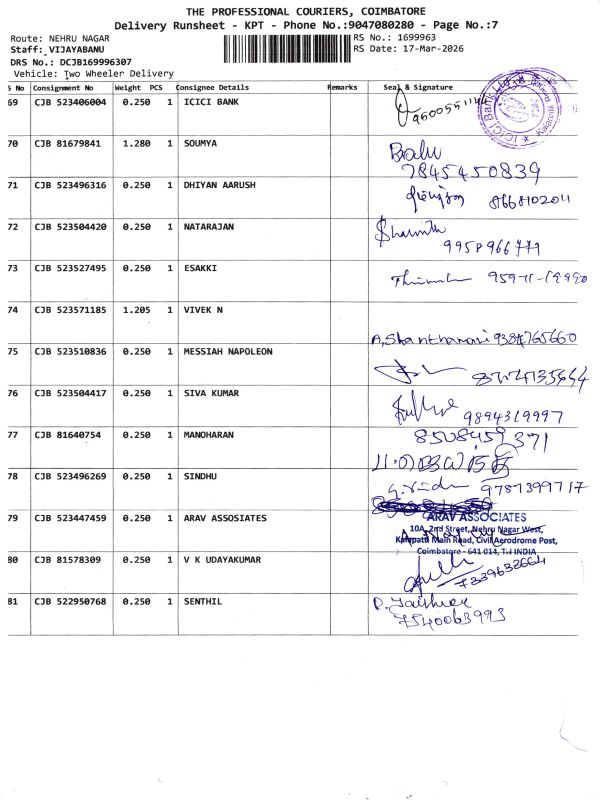 THE PROFESSIONAL COURIERS, COIMBATORE
Delivery Runsheet - KPT - Phone No.:9047080280 - Page No.:7
Route: NEHRU NAGAR RS No.: 1699963
Staff: VIJAYABANU RS Date: 17-Mar-2026
DRS No.: DCJB169996307
Vehicle: Two Wheeler Delivery
S No Consignment No Weight PCS Consignee Details Remarks Seal & Signature
69 CJB 523406004 0.250 1 ICICI BANK
ICICI Bank
70 CJB 81679841 1.280 1 SOUMYA
7845450839
71 CJB 523496316 0.250 1 DHIYAN AARUSH
8668102011
72 CJB 523504420 0.250 1 NATARAJAN
9958966779
73 CJB 523527495 0.250 1 ESAKKI
74 CJB 571185 1.205 1 VIVEK N
75 CJB 523510836 0.250 1 MESSIAH NAPOLEON
76 CJB 523504417 0.250 1 SIVA KUMAR
9894319997
77 CJB 81640754 0.250 1 MANOHARAN
8508459371
78 CJB 523496269 0.250 1 SINDHU
9787399717
79 CJB 523447459 0.250 1 ARAV ASSOSIATES
ARAV ASSOCIATES
10A, 2nd Street, Nehru Nagar West,
Kalapatti Main Road, Civil Aerodrome Post,
Coimbatore - 641 014, T.N INDIA
80 CJB 81578309 0.250 1 V K UDAYAKUMAR
7339632664
81 CJB 522950768 0.250 1 SENTHIL
7540063993